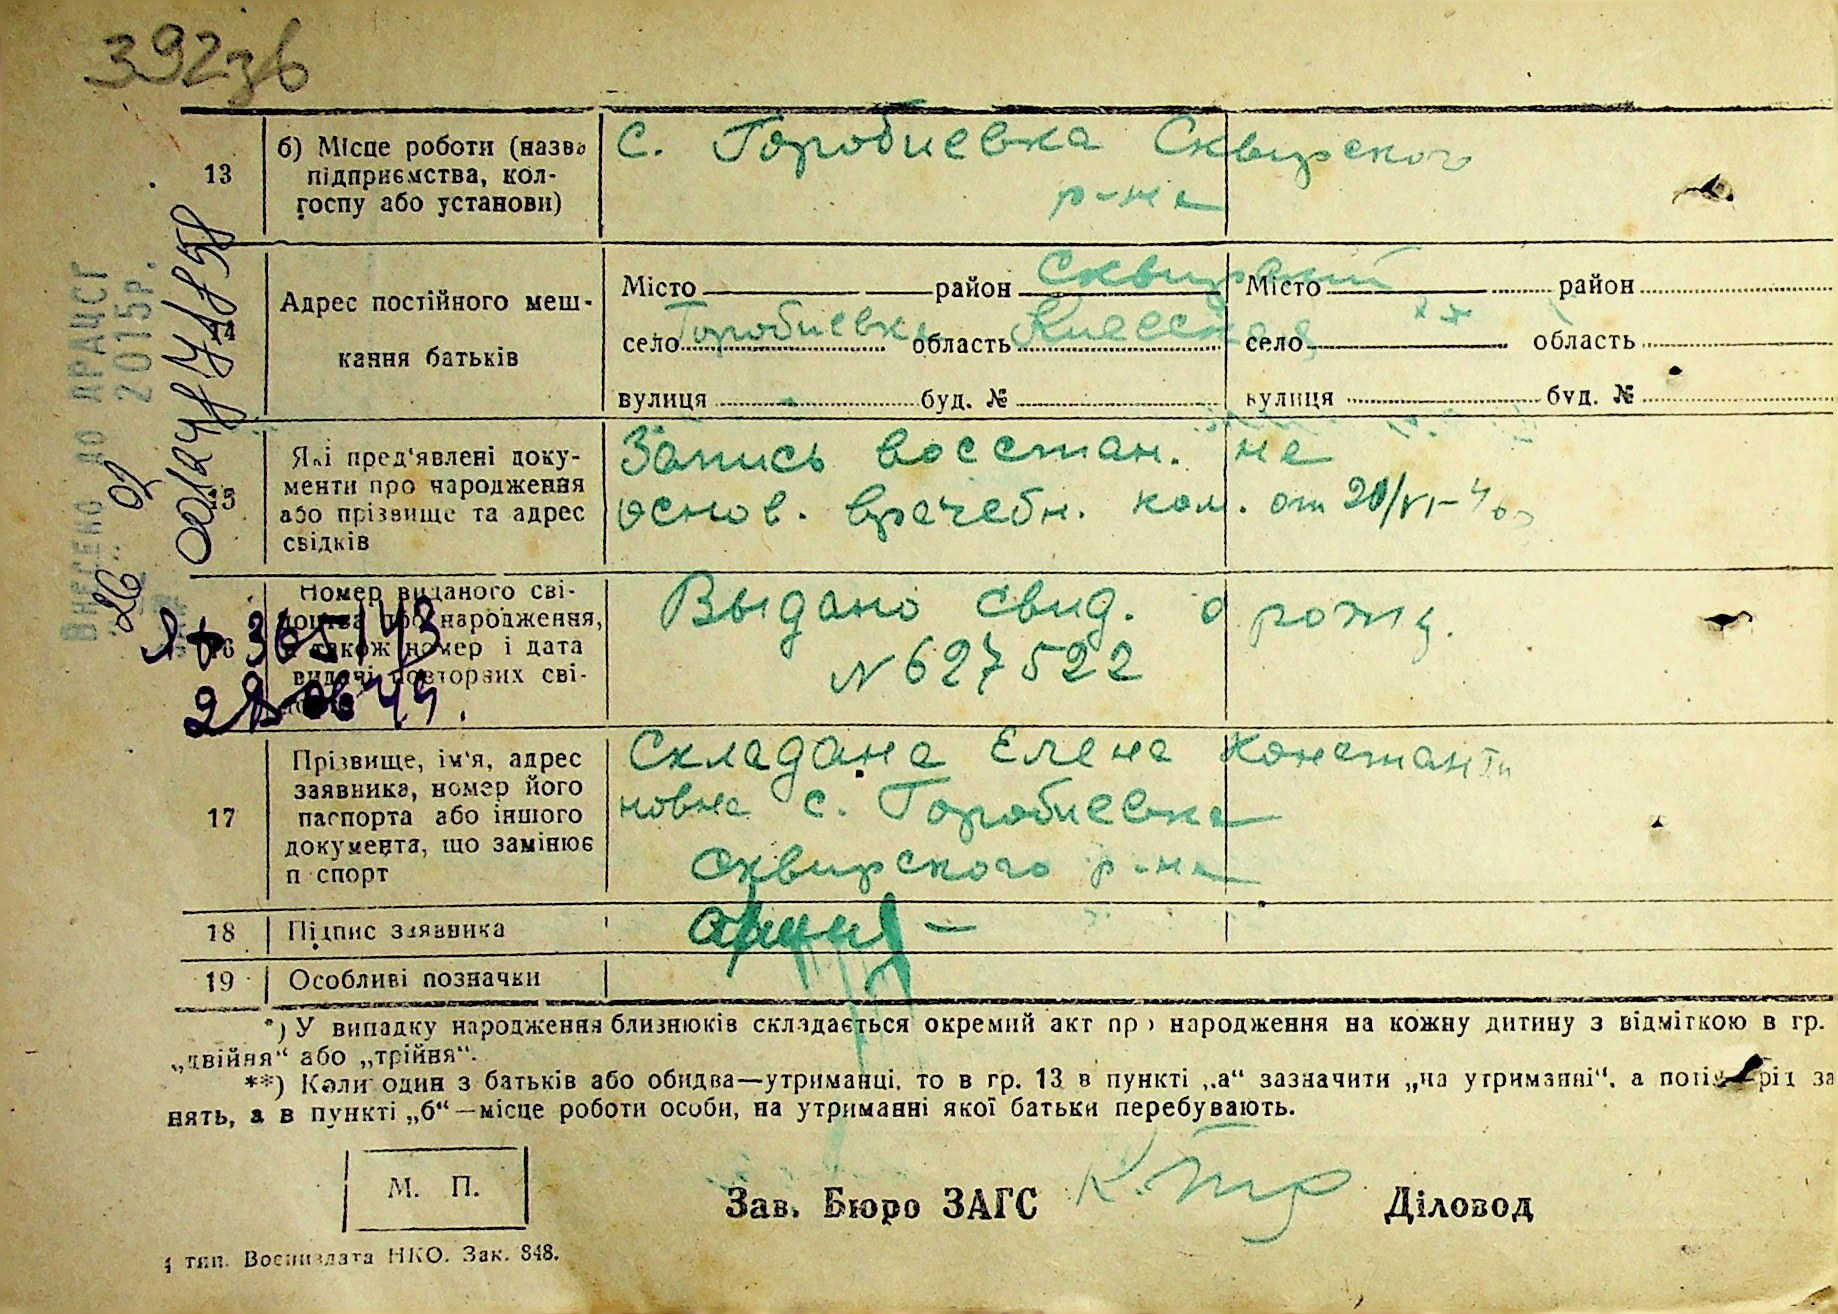 392зв
13
б) Місце роботи (назва
підприємства, кол-
госпу або установи)
с. Горобиевка Сквирского
р-на
14
Адрес постійного меш-
кання батьків
Місто район Сквирский Місто район
село Горобиевка область Киевская село область
вулиця буд. № вулиця буд. №
15
Які пред'явлені доку-
менти про народження
або прізвище та адрес
свідків
Запись восстан. на
основ. врачебн. ком. от
16
Номер виданого сві-
доцтва про народження,
а також номер і дата
видачі повторних сві-
Выдано свид. о рожд.
N 627522
17
Прізвище, ім'я, адрес
заявника, номер його
паспорта або іншого
документа, що замінює
паспорт
Складана Елена Константи
новна с. Горобиевка
Сквирского р-на
18 Підпис заявника
19 Особливі позначки
*) У випадку народження близнюків складається окремий акт про народження на кожну дитину з відміткою в гр.
„двійня“ або „трійня“.
**) Коли один з батьків або обидва—утриманці, то в гр. 13 в пункті „а“ зазначити „на утриманні“, а потім рід за
нять, а в пункті „б“—місце роботи особи, на утриманні якої батьки перебувають.
М. П.
Зав. Бюро ЗАГС Діловод
тип. Воениздата НКО. Зак. 848.
Внесено до ДРАЦСГ
26 02 2015р.